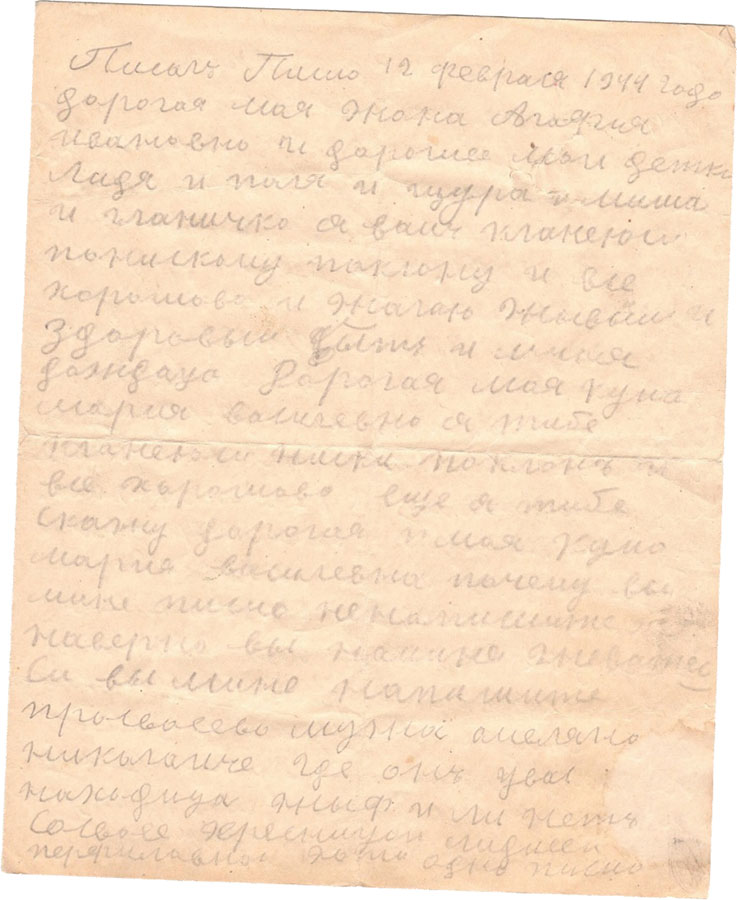 Писанъ Писмо 12 февраля 1944 годо
дорогая моя жона Агафия
ивановно и дорогие мои детки
Ладя и поля и щура и миша
и гланичко я вамъ кланеюси
понискому поклону и все
хорошово и жалаю живыми и
здоровыи быть и миня
дождаца Дорогая моя кума
мария васигевно я тибе
кланеюси ниски поклонъ и
все хорошово еще я тибе
скажу дорогая моя кумо
мария василевна почему вы
мине писмо ненапишите
наверно вы намине гневаетес
вы мине напишите
просвоево мужа омеляно
николаиче где онъ увас
находица жыф и ли нетъ
сосвоее хресницои лидиеси
перфиловнои хоть одно писмо